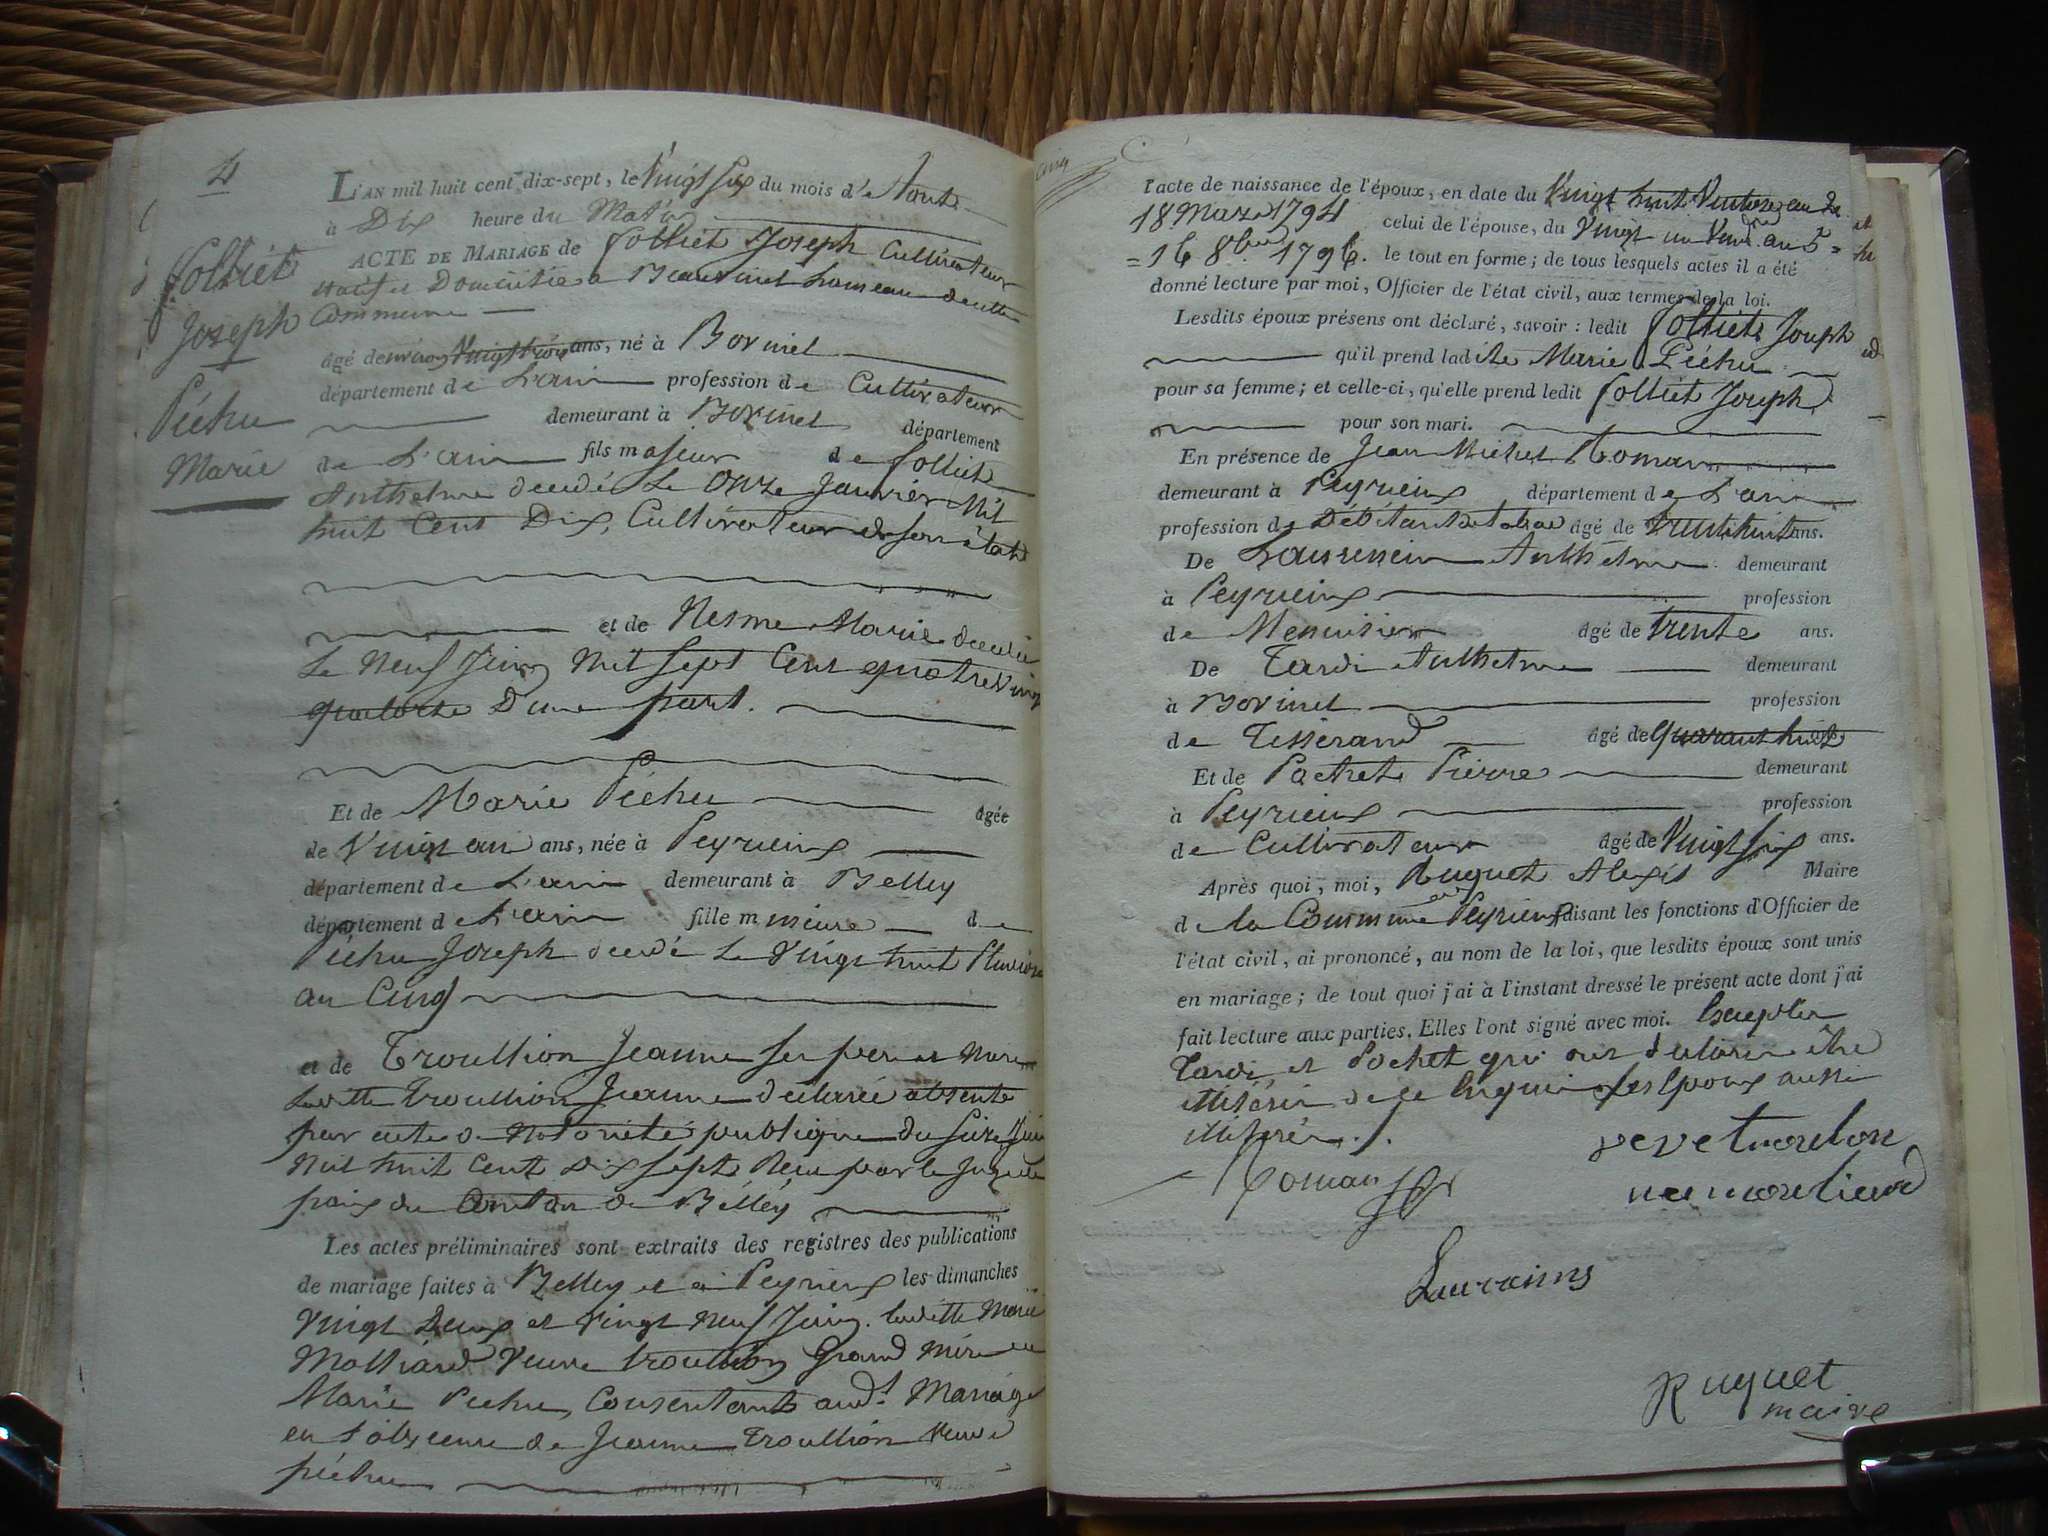 4
L'AN mil huit cent dix-sept, le Vingt six du mois d'e Aout
à Dix heure du Matin
ACTE DE MARIAGE de Folliet Joseph Cultivateur
natif et Domicilié a Beauvinel hameau de cette
Commune
Folliet
Joseph
Péchu
Marie
âgé de environ Vingt trois ans, né à Borvinel
département de L'ain profession de Cultivateur
demeurant à Borvinel département
de L'ain fils majeur de Folliet
Anthelme decedé Le Onze Janvier Mil
huit Cent Dix, Cultivateur de son état
et de Nesme Marie decedée
Le Neuf Juin Mil sept Cent quatre Vingt
quatorze D'une part.
Et de Marie Péchu âgée
de Vingt an ans, née à Peyrieux
département de L'ain demeurant à Belley
département de L'ain fille mineure de
Péchu Joseph decedé Le Vingt huit Pluviose
an Cinq
et de Troullion Jeanne ses pere et Mere
Laditte Troullion Jeanne déclarée absente
par acte de Notoriété publique du Seize Juin
Mil huit Cent Dix sept Recu par le Juge de
paix du Canton de Belley
Les actes préliminaires sont extraits des registres des publications
de mariage faites à Belley et a Peyrieux les dimanches
Vingt Deux et Vingt Neuf Juin. laditte Marie
Molliard Veuve Troullion Grand mére de
Marie Péchu, Consentant aud.t Mariage
en l'abscence de Jeanne Troullion Veuve
péchu
Cinq
l'acte de naissance de l'époux, en date du Vingt huit Ventose an 2e
18 Mars 1794 celui de l'épouse, du Vingt un Vend.re an 5e =
= 16 8bre 1796. le tout en forme; de tous lesquels actes il a été
donné lecture par moi, Officier de l'état civil, aux termes de la loi.
Lesdits époux présens ont déclaré, savoir : ledit Folliet Joseph
qu'il prend ladite Marie Péchu
pour sa femme; et celle-ci, qu'elle prend ledit Folliet Joseph
pour son mari.
En présence de Jean Michel Roman
demeurant à Peyrieux département de L'ain
profession de Débitant de tabac âgé de Trente huit ans.
De Anthelme demeurant
à Peyrieux profession
de Menuisier âgé de Trente ans.
De Tardi Anthelme demeurant
à Borvinel profession
de Tisserand âgé de Quarant huit ans.
Et de Pochet Pierre demeurant
à Peyrieux profession
de Cultivateur âgé de Vingt six ans.
Après quoi, moi, Ruquet Alexis Maire
de la Commune de Peyrieux faisant les fonctions d'Officier de
l'état civil, ai prononcé, au nom de la loi, que lesdits époux sont unis
en mariage; de tout quoi j'ai à l'instant dressé le présent acte dont j'ai
fait lecture aux parties. Elles l'ont signé avec moi. Excepter
Tardi et Pochet qui ont déclarer être
illitéré de ce Enquis les Epoux aussi
illitérés.
Roman veve troulon
nee morliard
Ruquet
maire